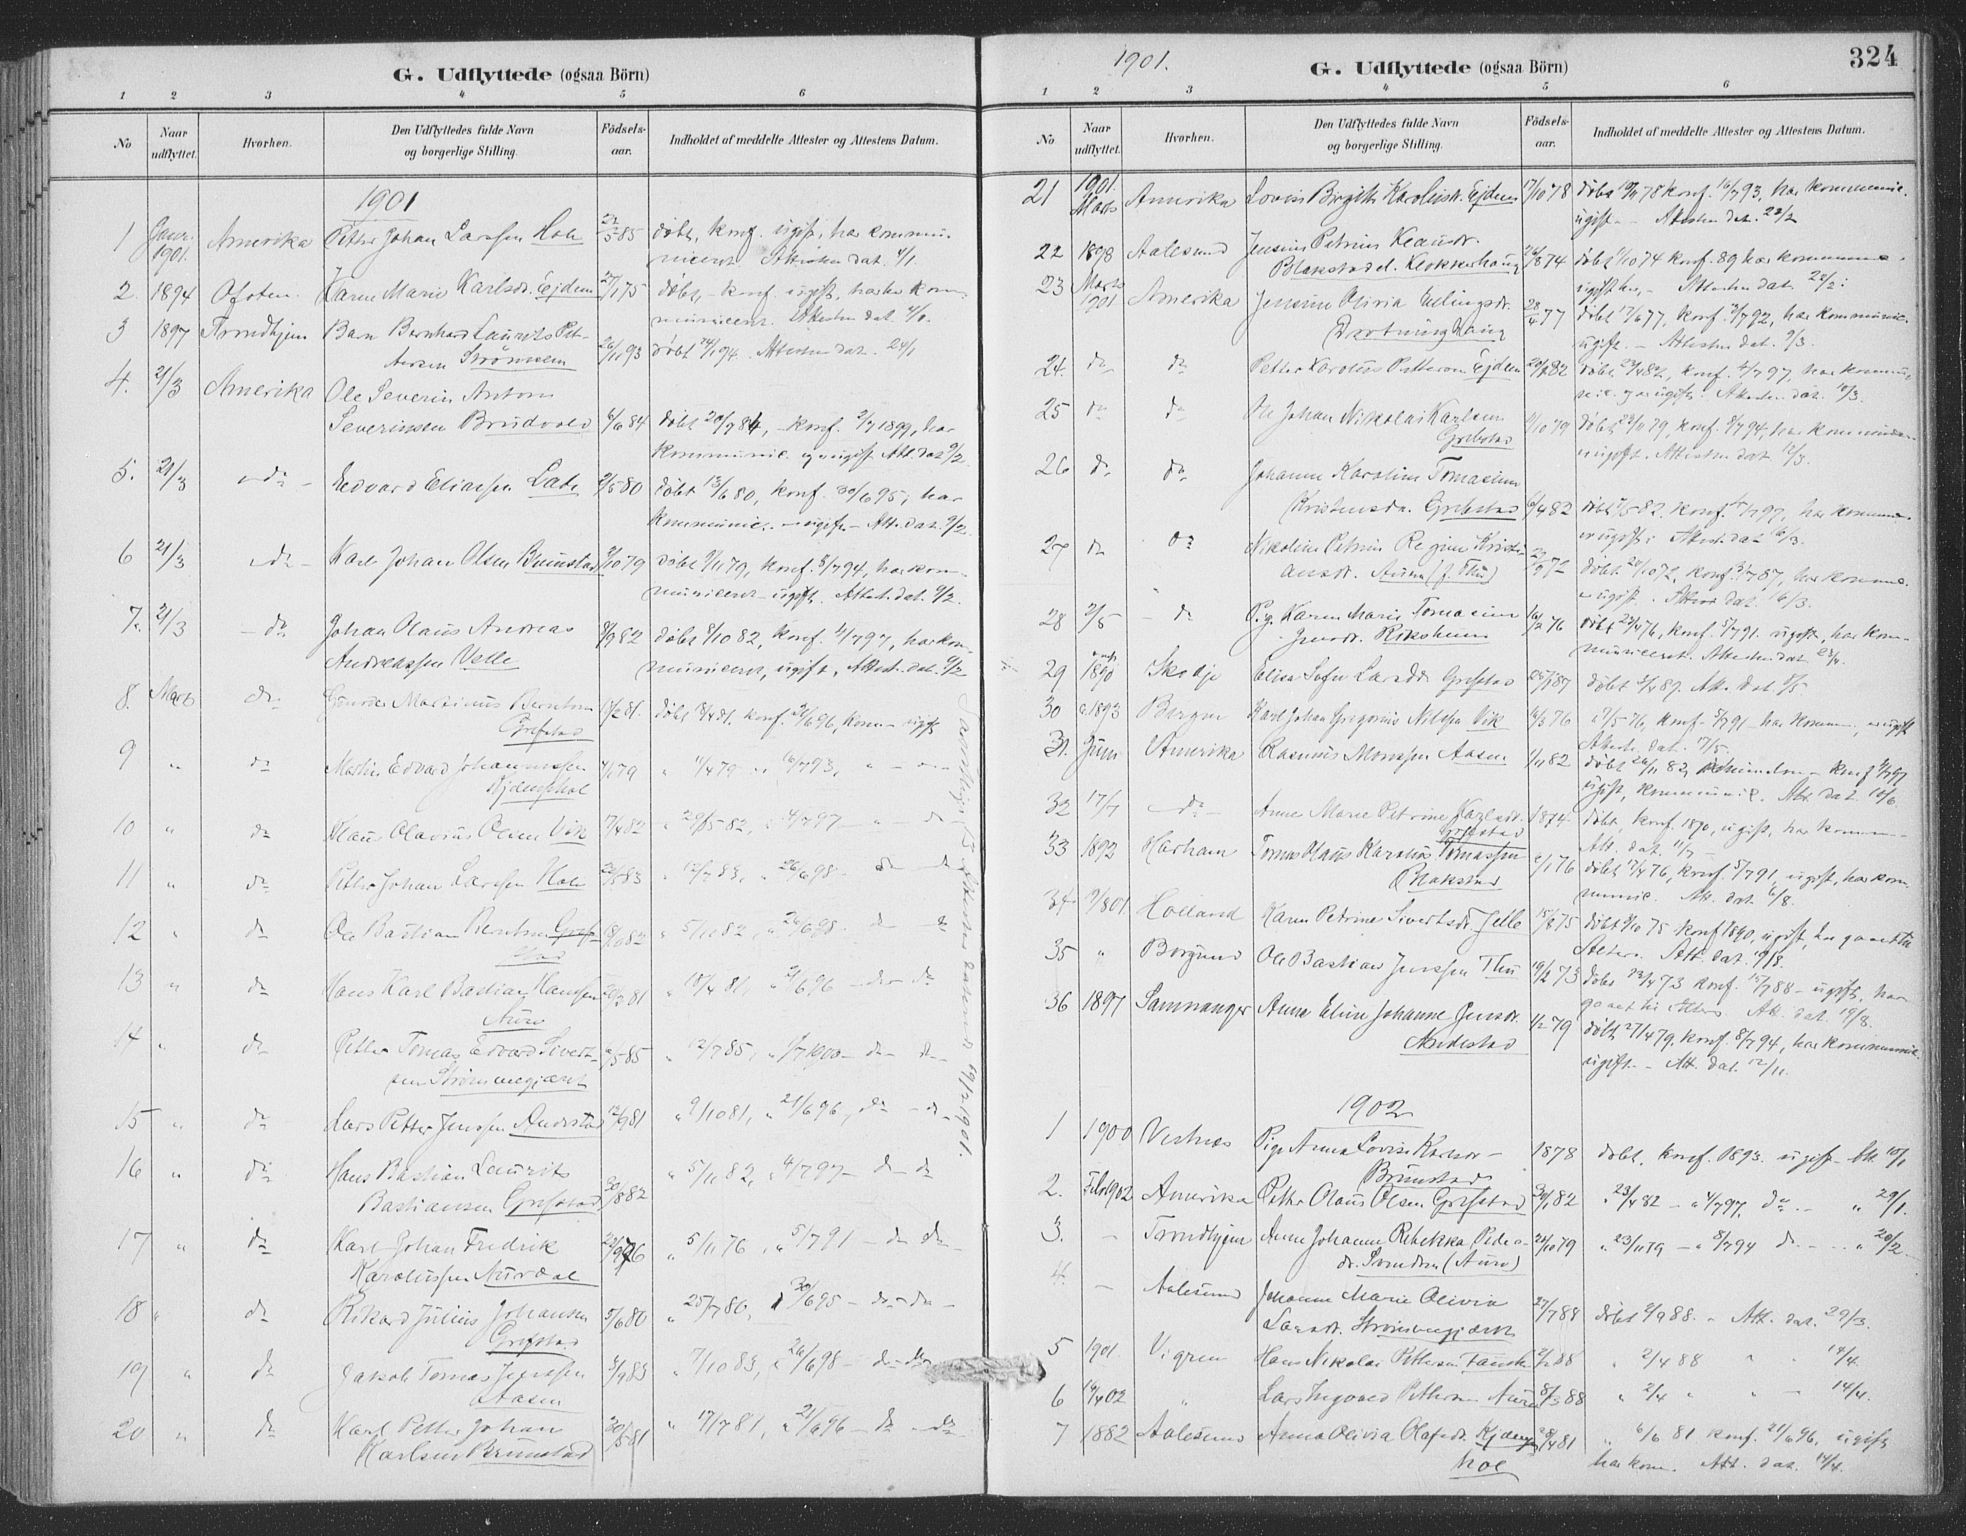 G. Udflyttede (ogsaa Börn)
1 2 3 4 5 6
No
Naar udflyttet.
Hvorhen.
Den Udflyttedes fulde Navn
og borgerlige Stilling.
Födsels-
aar.
Indholdet af meddelte Attester og Attestens Datum.
1901
1 Januar 1901. Amerika Petter Johan Larssen Hole 22/5 85 døbt, konf. ugift, har kommu-
niceret. Attesten dat. 4/1.
2. 1894 Ofoten Karen Marie Karlsdr. Ejdem 27/1 75 døbt - konf. ugift, har kom-
municeret. Attesten dat.
3 1897 Trondhjem Barn Bernhard Laurits Pet-
tersen Strømmen 26/11 93 døbt 14/1 94. Attesten dat. 24/1
4. 21/3 Amerika Ole Severin Anton
Severinsen Brudvold 6/6 84 døbt 20/7 84, - konf. 2/7 1899, har
kommunic. og er ugift Att. dat 9/2.
5. 21/3 - do - Edvard Eliassen Lade 9/5 80 døbt 13/6 80, konf. 30/6 95, har
kommunic. - ugift - Att. dat. 9/2.
6 21/3 - do - Karl Johan Olsen Brunstad 9/10 79 døbt 9/11 79, konf. 8/7 94, har kom-
municeret - ugift. Attest. dat. 9/2.
7. 21/3 - do Johan Olaus Andreas
Andreassen Velle 8/9 82 døbt 8/10 82, konf. 4/7 97, har kom-
municeret, ugift, Attest. dat. 9/2
8. Marts do Martinus Berntsen
Grebstad 17/2 81. døbt 18/4 81. konf. 21/6 96, kom - ugift
9 " do Martin Edvard Johannessen
Kjdemshol 7/1 79 " 11/4 79 " 16/7 93, " - " -
10 " do Klaus Olavius Olsen Vik 17/4 82 " 29/5 82, " 4/7 97 - " - do
11 " do Petter Johan Larssen Hole 22/5 83 " 12/7 83, " 26/6 98 - do - do
12 " do Ole Bastian Berntsen Greb-
stad 18/10 82 " 5/11 82, " 26/6 98 - do - do
13 " do Hans Karl Bastian Hanssen
Aure 20/3 81 " 18/4 81, " 21/6 96 - do - do
14 " do Petter Tomas Edvard Sivert-
sen Strømmegjæret 2/5 85 " 12/7 85, " 1/7 1900 - do - do
15 " do Lars Petter Jenssen Andestad 12/9 81 " 9/10 81, " 21/6 96, do - do
16 " do Hans Bastian Laurits
Bastiansen Grebstad 30/8 82 " 5/11 82, " 4/7 97 - do do
17 " do Karl Johan Fredrik
Karolussen Aurdal 23/9 76 " 5/11 76, " 5/7 91 - do - do
18 " do Rikard Julius Johansen
Grebstad 5/6 80 " 25/7 80, " 30/6 95 - do - do -
19 " do Jakob Tomas Jenssen
Aasen 3/9 83 " 7/10 83, " 26/6 98 - do - do
20 " do Karl Petter Johan
Karlsen Brunstad 30/5 81 " 17/7 81, " 21/6 96 - do - do
1901.
324
G. Udflyttede (ogsaa Börn)
1 2 3 4 5 6
No
Naar udflyttet.
Hvorhen.
Den Udflyttedes fulde Navn
og borgerlige Stilling.
Födsels-
aar.
Indholdet af meddelte Attester og Attestens Datum.
21 1901. Marts Amerika Lovise Birgitte Karolusdr. Ejdem 17/10 78 døbt 10/11 78 konf. 16/7 93, har kommunic.
ugift - Attesten dat. 22/2
22 1898 Aalesund Jensine Petrine Klausdr.
Blakstad el. Klokkerhaug 26/8 74 døbt 11/10 74 konf. 89 har kommunic.
ugift - Attesten dat. 22/2.
23 Marts 1901 Amerika Jensine Olivia Erlingsdr.
Dronninghaug 28/4 77 døbt 17/6 77, konf. 3/7 92, har kommunic.
ugift. - Attesten dat. 9/3.
24. do do Petter Karolus Pettersen Ejdem konf. 4/7 97, har kommu-
nic. og er ugift. Attesten dat. 10/3.
25 do do Ole Johan Nikolai Karlsen
Grebstad konf. 8/7 94, har kommunic.
er ugift. Attesten dat. 12/3.
26 do do Johanne Karoline Tomasine
Kristensdr. Grebstad 6/4 82 konf. 4/7 97, har kommunic.
er ugift. Attest. dat 16/3.
27 do do Nikoline Petrine Regine Kristi-
ansdr. Aure (f. Thu) 22/9 72 døbt 20/10 72, konf. 3/7 87, har kommunic.
- ugift. Attest dat. 16/3.
28 2/5 - do Pige Karen Marie Tomasine
Jensdr. Riksheim 16/2 76 døbt 23/4 76, konf. 5/7 91 ugift, har kom-
municeret. Attesten dat 23/4.
29 1890 Skodje Elisa Sofie Larsdr. Grebstad døbt Att. dat. 8/5.
30 c. 1893 Bergen Karl Johan Gregorius Nilssen Vik 16/3 76 d. 7/5 76, konf. 5/7 91 - har kommun., er ugift
Attest. dat. 17/5.
31. Juni Amerika Rasmus Monssen Aasen 1/11 82 døbt 26/11 82, konf 4/7 97
ugift, kommunic. Att. dat. 10/6
32 17/7 - do - Anne Marie Petrine Karlsdr.
Grebstad 1874. døbt, konf. 1890, ugift, har kommun-
Att. dat. 11/7 -
33 1892 Harham Tomas Olaus Karolius Tomassen
Blakstad døbt 17/4 76, konf. 5/7 91, ugift, har kom-
munic. Att. dat. 6/8.
34 9/8 01 Holland Karen Petrine Sivertsdr. Jelle 15/8 75 døbt 9/10 75 konf 1890, ugift, har gaaet til
Alters. Att. dat. 19/8.
35 " Borgund Ole Bastian Jenssen Thu 19/2 73 døbt 23/4 73 konf. 15/7 88 - ugift, har
gaaet til Alters Att. dat. 19/8.
36 1897 Samnanger Anne Eline Johanne Jensdr.
Andestad 1/2 79 døbt 27/4 79, konf. 8/7 94, har kommunic.
ugift. - Att. dat. 12/11.
1902
1 1900 Vestnes Pige Anna Lovise Karlsdr -
Brunstad 1878 døbt, konf. 1893. ugift - Att. 10/1
2. Febr 1902 Amerika Petter Olaus Olsen Grebstad 30/1 82 " 23/4 82 - " 4/7 97, do. - " 29/1.
3. - Trondhjem Anne Johanne Rebekka Peders-
dr. Svendsen (Aure) 24/10 79 " 23/11 79 - " 8/7 94 do. - " 20/2.
4. - Aalesund Johanne Marie Olivia
Larsdr. Strømmegjæret 27/7 88 døbt 2/9 88. " Att. dat. 29/3.
5 1901. Vigren Hans Nikolai Pettersen 2/2 88 " 2/4 88 " " 14/4.
6 14/4 02 " Lars Ingvald Pettersen Aure 8/3 88 " 2/4 " " - 14/4.
7 1882 Aalesund Anna Olivia Olafsdr. Kjdems-
hol 28/4 81 " 6/6 81 konf. 21/6 96, ugift
har kom. Att. dat. 14/4.